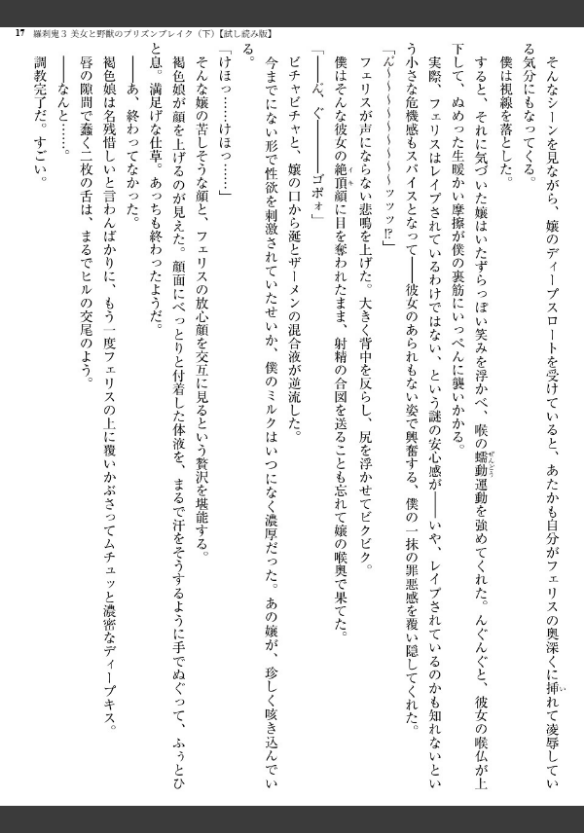 17 羅刹鬼３ 美女と野獣のプリズンブレイク（下）【試し読み版】
そんなシーンを見ながら、嬢のディープスロートを受けていると、あたかも自分がフェリスの奥深くに挿れて凌辱してい
る気分にもなってくる。
僕は視線を落とした。
すると、それに気づいた嬢はいたずらっぽい笑みを浮かべ、喉の蠕動運動を強めてくれた。んぐんぐと、彼女の喉仏が上
下して、ぬめった生暖かい摩擦が僕の裏筋にいっぺんに襲いかかる。
実際、フェリスはレイプされているわけではない、という謎の安心感が――いや、レイプされているのかも知れないとい
う小さな危機感もスパイスとなって――彼女のあられもない姿で興奮する、僕の一抹の罪悪感を覆い隠してくれた。
「ん～～～～～～～～ッッッ!?」
フェリスが声にならない悲鳴を上げた。大きく背中を反らし、尻を浮かせてビクビク。
僕はそんな彼女の絶頂顔に目を奪われたまま、射精の合図を送ることも忘れて嬢の喉奥で果てた。
「――ん、ぐ――ゴポォ」
ビチャビチャと、嬢の口から涎とザーメンの混合液が逆流した。
今までにない形で性欲を刺激されていたせいか、僕のミルクはいつになく濃厚だった。あの嬢が、珍しく咳き込んでい
る。
「けほっ……けほっ……」
そんな嬢の苦しそうな顔と、フェリスの放心顔を交互に見るという贅沢を堪能する。
褐色娘が顔を上げるのが見えた。顔面にべっとりと付着した体液を、まるで汗をそうするように手でぬぐって、ふぅとひ
と息。満足げな仕草。あっちも終わったようだ。
――あ、終わってなかった。
褐色娘は名残惜しいと言わんばかりに、もう一度フェリスの上に覆いかぶさってムチュッと濃密なディープキス。
唇の隙間で蠢く二枚の舌は、まるでヒルの交尾のよう。
――なんと……。
調教完了だ。すごい。